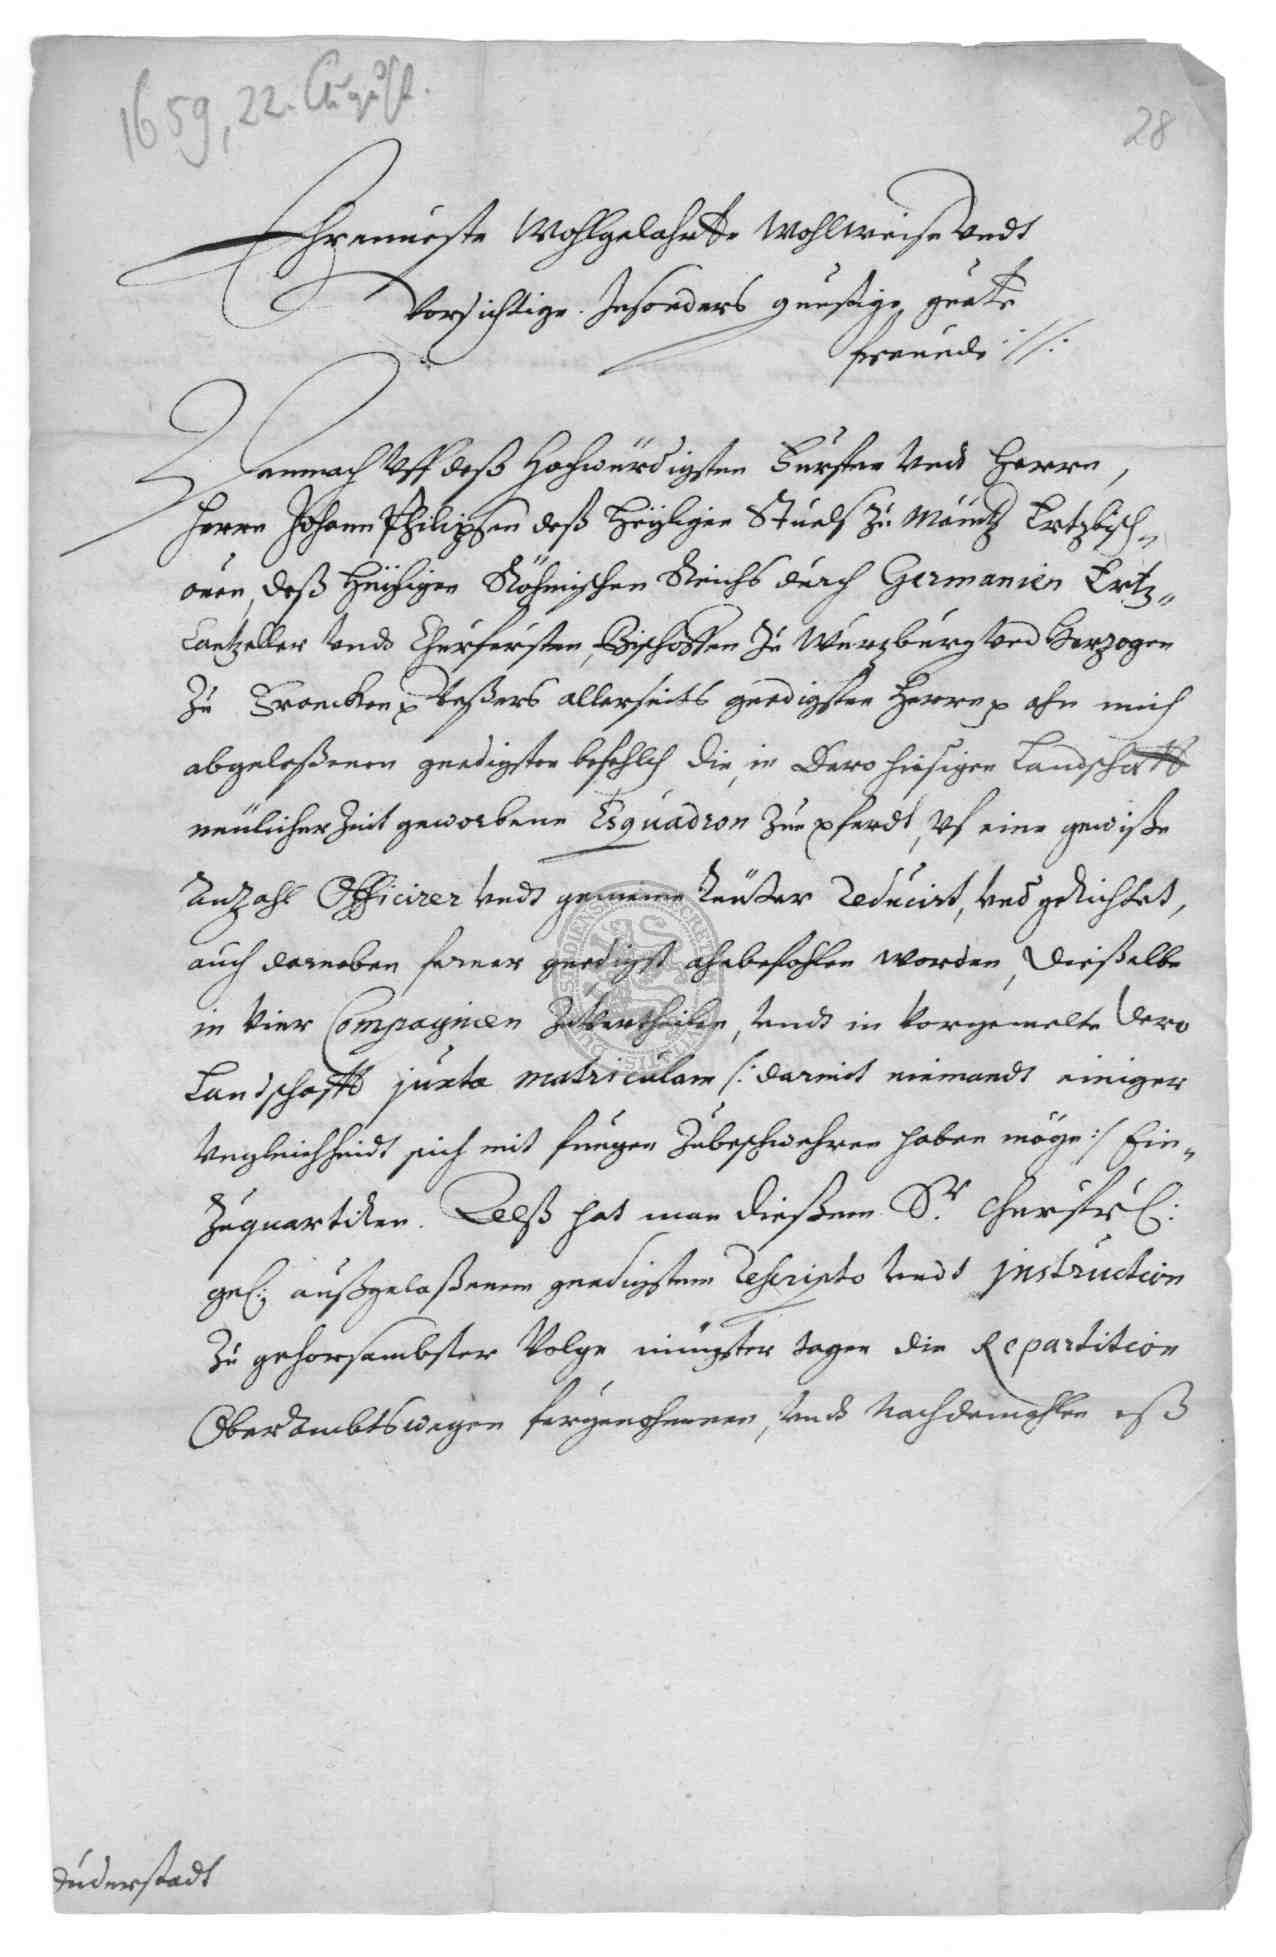 1659, 22. August.
28
Ehrnueste Wohlgelahrtte Wohlweise Vndt
Vorsichtige. Insonders günstige guette
freunde ://:
Demnach Vff deß Hochwürdigsten Fursten Vnd Herrn,
Herrn Johann Philipsen deß Heyligen Stuels Zu Mäintz Ertzbisch„
ouen, deß Heyligen Römischen Reichs durch Germanien Ertz„
Cantzeller Vndt Churfursten, Bischoffen Zu Wurzburg Vnd Herzogen
Zu Francken p Vnßers allerseits gnedigsten Herrn p ahn mich
abgelaßenen gnedigsten befehlch die, in Dero hiesigen Landschafft
neülicher Zeit geworbene Esquadron Zue pferdt, Vf eine gewiße
Anzahl Officirer Vndt gemeine Reütter Reducirt, Vnd gerichtet,
auch darneben ferner gnedigst ahnbefohlen worden, dießelbe
in Vier Compagnien Zuvertheilen, Vndt in Vorgemelte Dero
Landschafft juxta matriculam /: darmit niemandt einiger
Vngleichheidt sich mit fuegen Zubeschwehren haben möge :/ Ein„
Zuquartiren. Alß hat man dießem Sr. Churfrl:
gn: außgelaßenem gnedigstem Rescripto Vndt jnstruction
Zu gehorsambster Volge jüngster tagen die Repartition
OberAmbtswegen fürgenohmmen, Vndt Nachdemahlen eß
Duderstadt